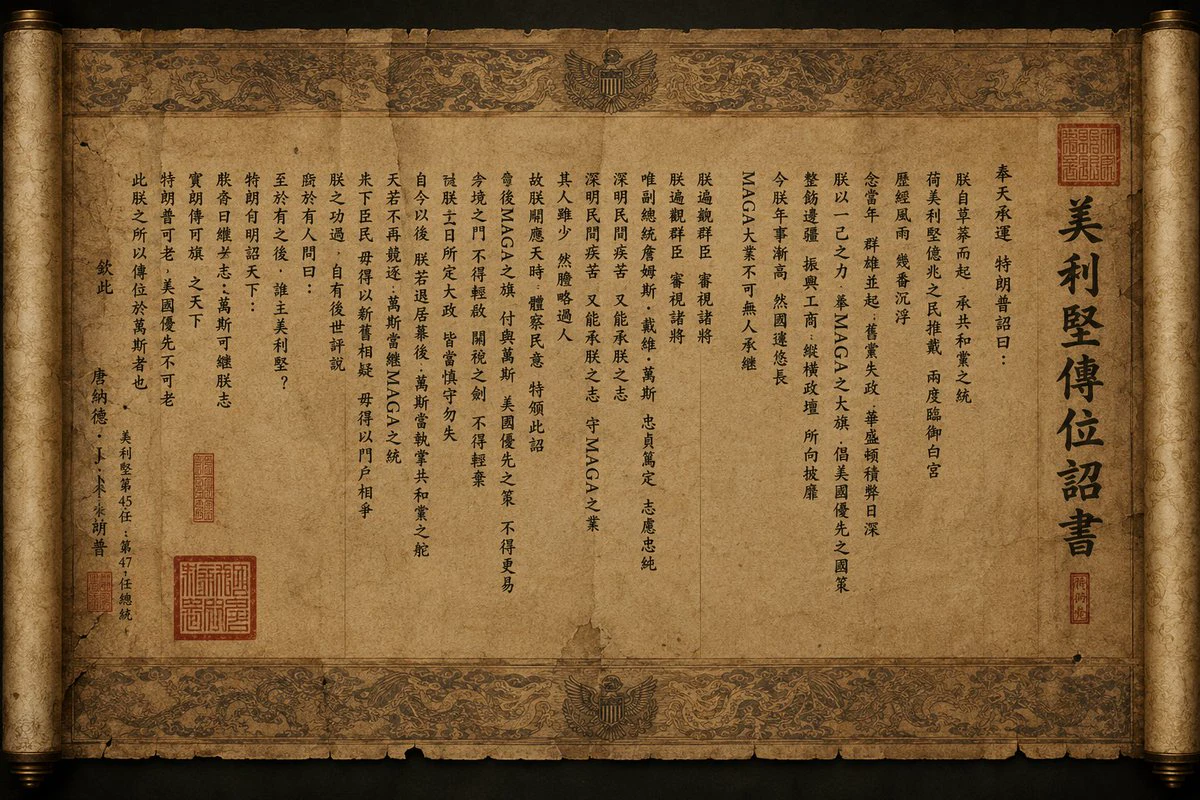 美利堅傳位詔書
奉天承運 特朗普詔曰：
朕自草莽而起 承共和黨之統
荷美利堅億兆之民推戴 兩度臨御白宮
歷經風雨 幾番沉浮
念當年 群雄並起；舊黨失政，華盛頓積弊日深
朕以一己之力，舉MAGA之大旗，倡美國優先之國策
整飭邊疆 振興工商，縱橫政壇 所向披靡
今朕年事漸高 然國運悠長
MAGA大業不可無人承繼
朕遍觀群臣 審視諸將
朕遍觀群臣 審視諸將
唯副總統詹姆斯・戴維・萬斯 忠貞篤定 志慮忠純
深明民間疾苦 又能承朕之志
深明民間疾苦 又能承朕之志 守MAGA之業
其人雖少 然膽略過人
故朕應天時，體察民意 特頒此詔
後MAGA之旗 付與萬斯 美國優先之策 不得更易
境之門不得輕啟 關稅之劍 不得輕棄
朕日所定大政 皆當慎守勿失
自今以後 朕若退居幕後，萬斯當執掌共和黨之舵
天若不再競逐，萬斯當繼MAGA之統
下臣民 毋得以新舊相疑 毋得以門戶相爭
朕之功過，自有後世評說
於有人問曰：
至於有之後，誰主美利堅？
特朗明詔天下：
曰繼志：萬斯可繼朕志
朗傳可旗 之天下
特朗普可老，美國優先不可老
此朕之所以傳位於萬斯者也
欽此
美利堅第45任、第47任總統
唐納德・朗普